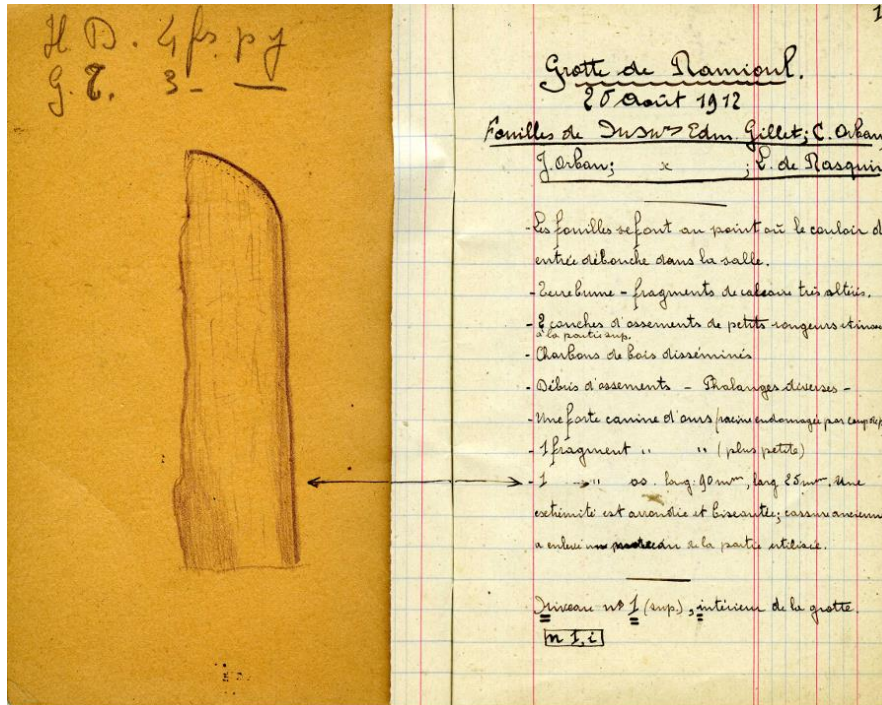 H. D. 4 fs. p y
G. T. 3 - —
1
Grotte de Ramioul.
25 Août 1912
Fouilles de Edm. Gillet; C. Orban
J. Orban; x ; L. de Rasquin
- Les fouilles se font au point où le couloir d
entrée débouche dans la salle.
- Terre brune - fragments de calcaire très altérés.
- 2 couches d'ossements de petits rongeurs
à la partie sup.
- Charbons de bois disséminés
- Débris d'ossements - Phalanges diverses -
- Une forte canine d'ours (racine endomagée par coup de
- 1 fragment " " (plus petite)
- 1 " os. long. 90 mm, larg 25 mm. Une
extrémité est arrondie et biseautée; cassure ancienne
a enlevé un morceau de la partie utilisée.
Niveau nº 1 (sup), intérieur de la grotte.
n 1, i